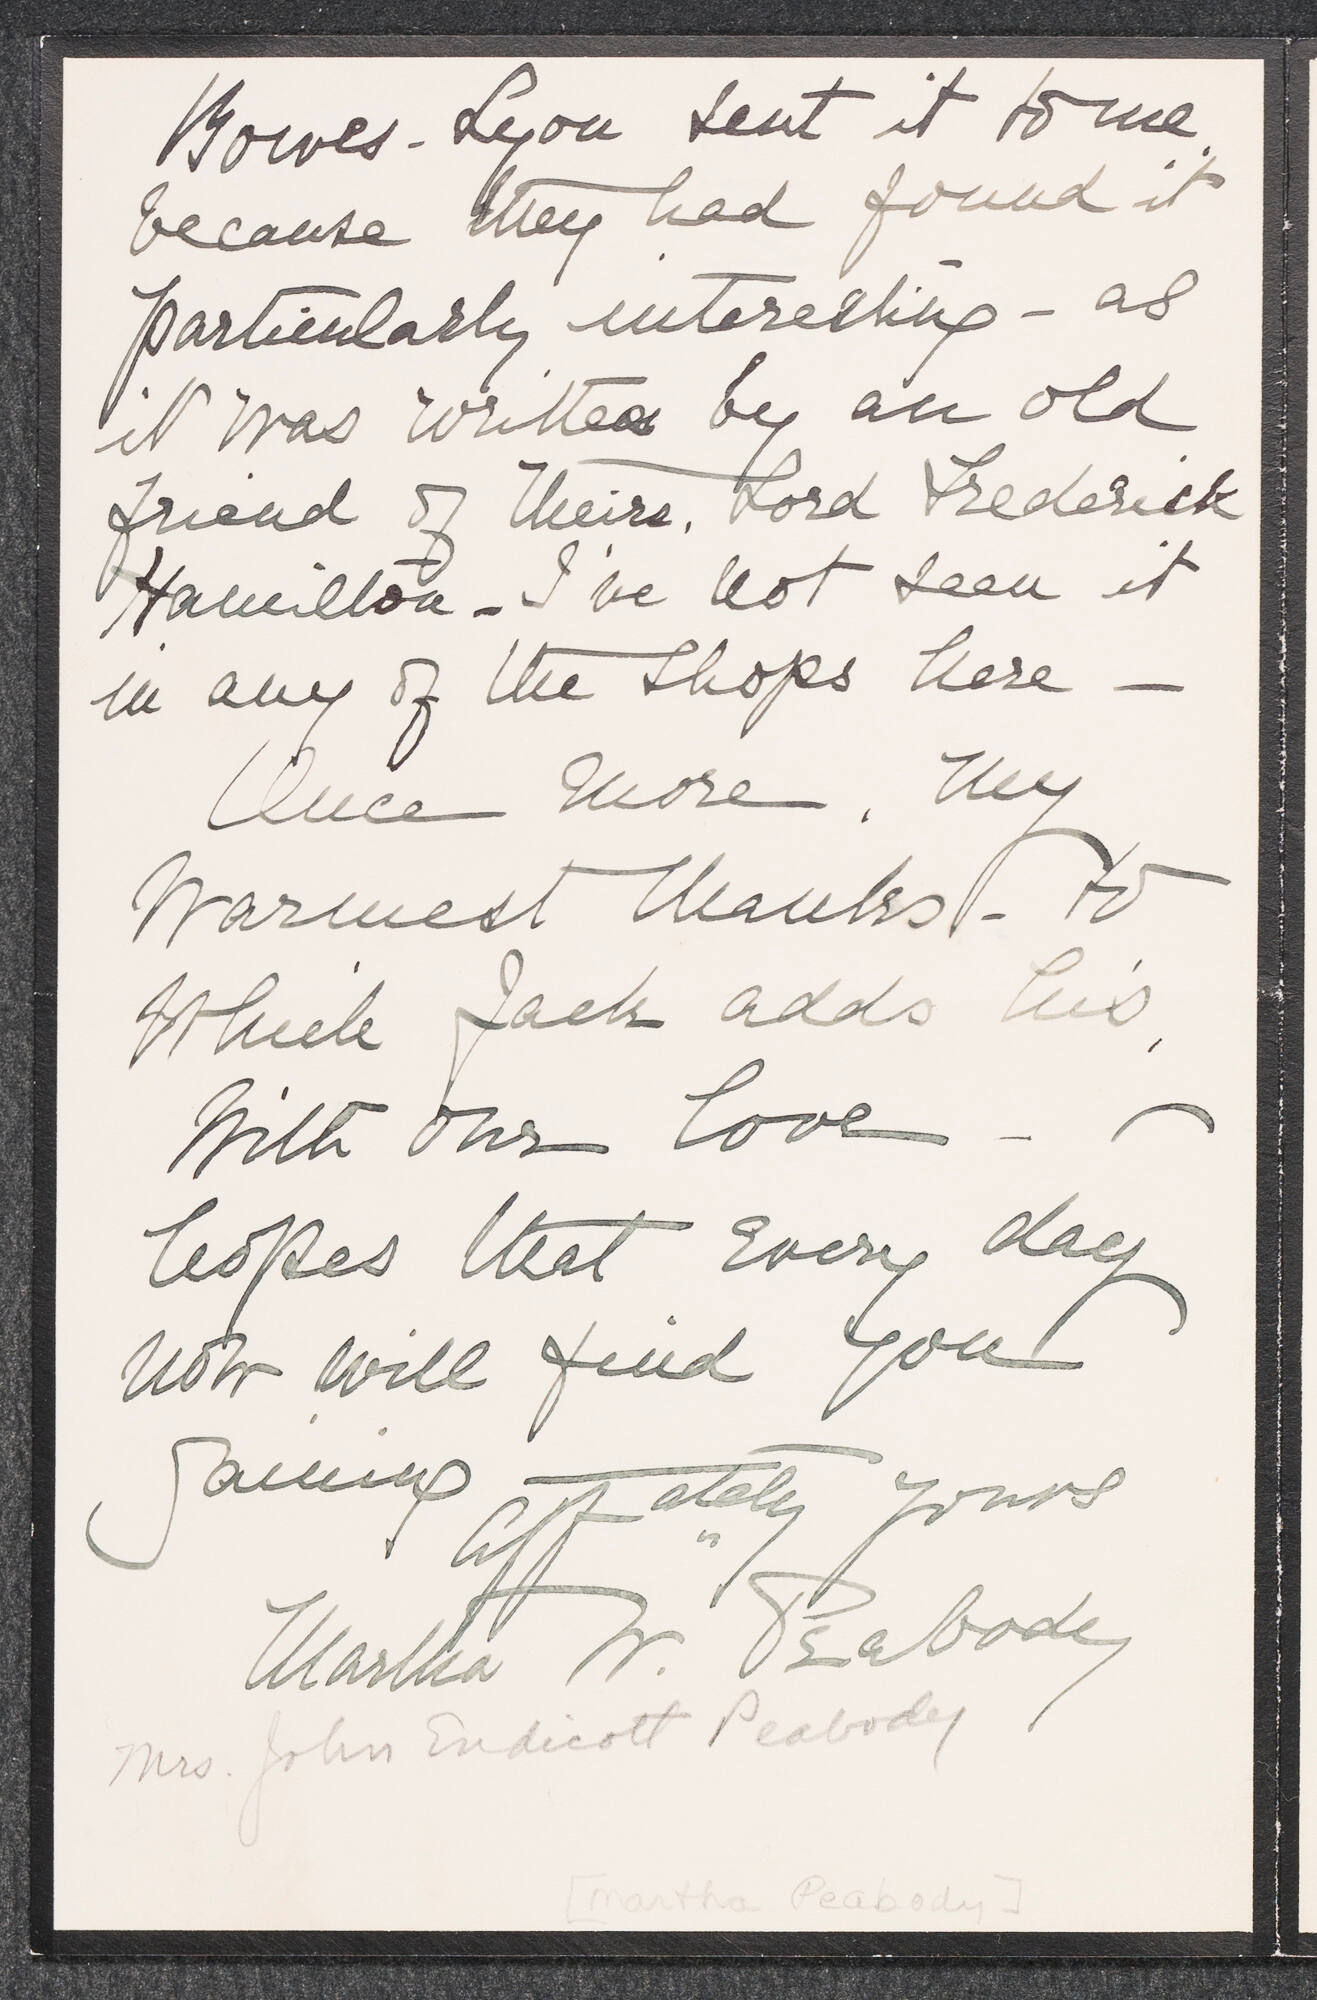 Bowes-Lyon sent it to me
because they had found it
particularly interesting - as
it was written by an old
friend of theirs, Lord Frederick
Hamilton - I've not seen it
in any of the shops here -
Once more, my
warmest thanks - to
which Jack adds his,
With our love -
hopes that every day
now will find you
gaining
affately yours
Martha W. Peabody
Mrs. John Endicott Peabody
[Martha Peabody]